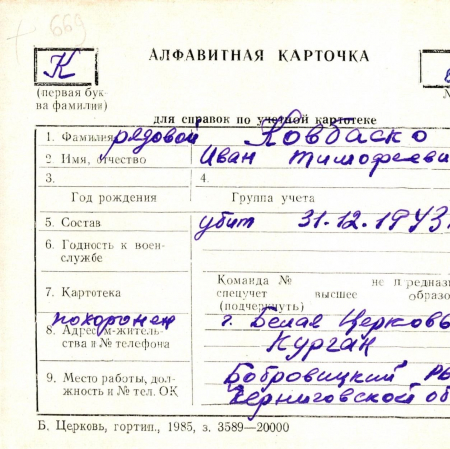 669
АЛФАВИТНАЯ КАРТОЧКА
К
(первая бук-
ва фамилии)
для справок по учетной картотеке
1. Фамилия рядовой Ковбаско
2. Имя, отчество Иван Тимофееви
3.
4.
Год рождения Группа учета
5. Состав убит 31.12.1943
6. Годность к воен-
службе
Команда № не предназ
7. Картотека спецучет высшее образо
(подчеркнуть)
похоронен г. Белая Церковь
8. Адрес м-житель-
ства и № телефона Курган
9. Место работы, дол-
жность и № тел. ОК
Бобровицкий
Черниговской об
Б. Церковь, гортип., 1985, з. 3589—20000